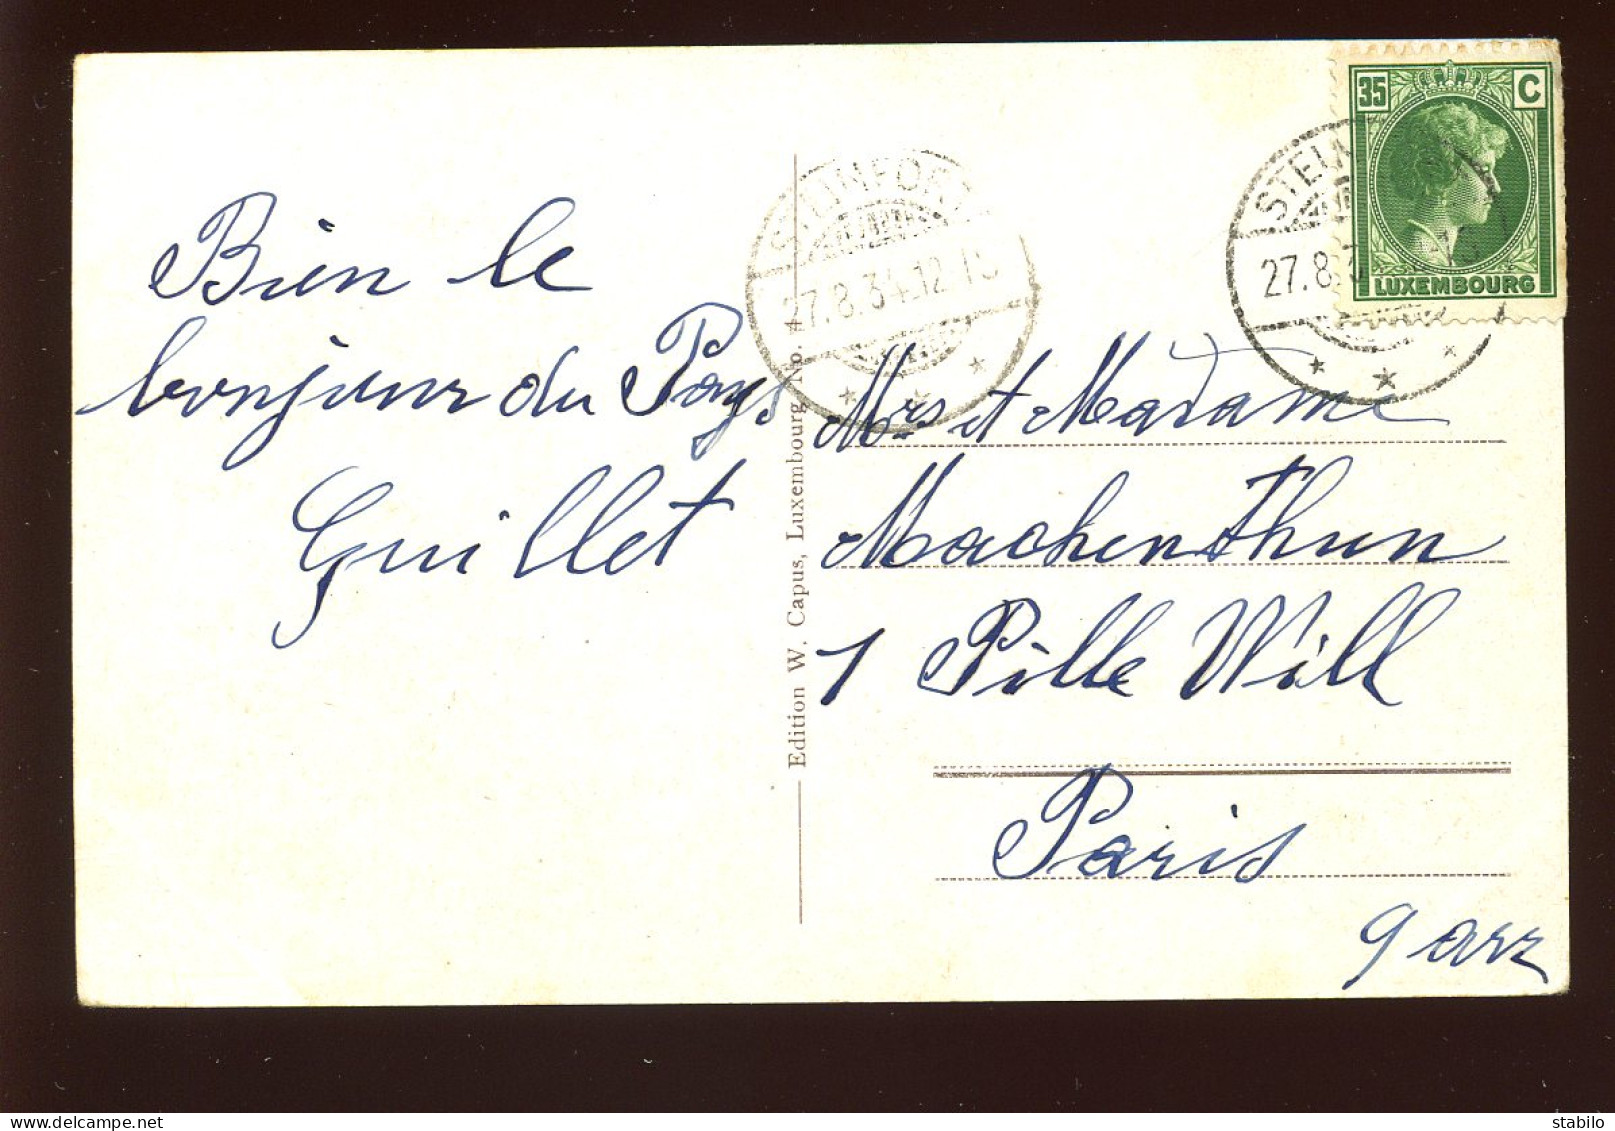 Bien le
bonjour du Pays
Guillet
Edition W. Capus, Luxembourg No. 4
STEINFORT
27.8.34.12
35 C
LUXEMBOURG
STEIN
27.8.3
Mrs et Madame
Machenthun
1 Pille Will
Paris
9 arr
stabilo